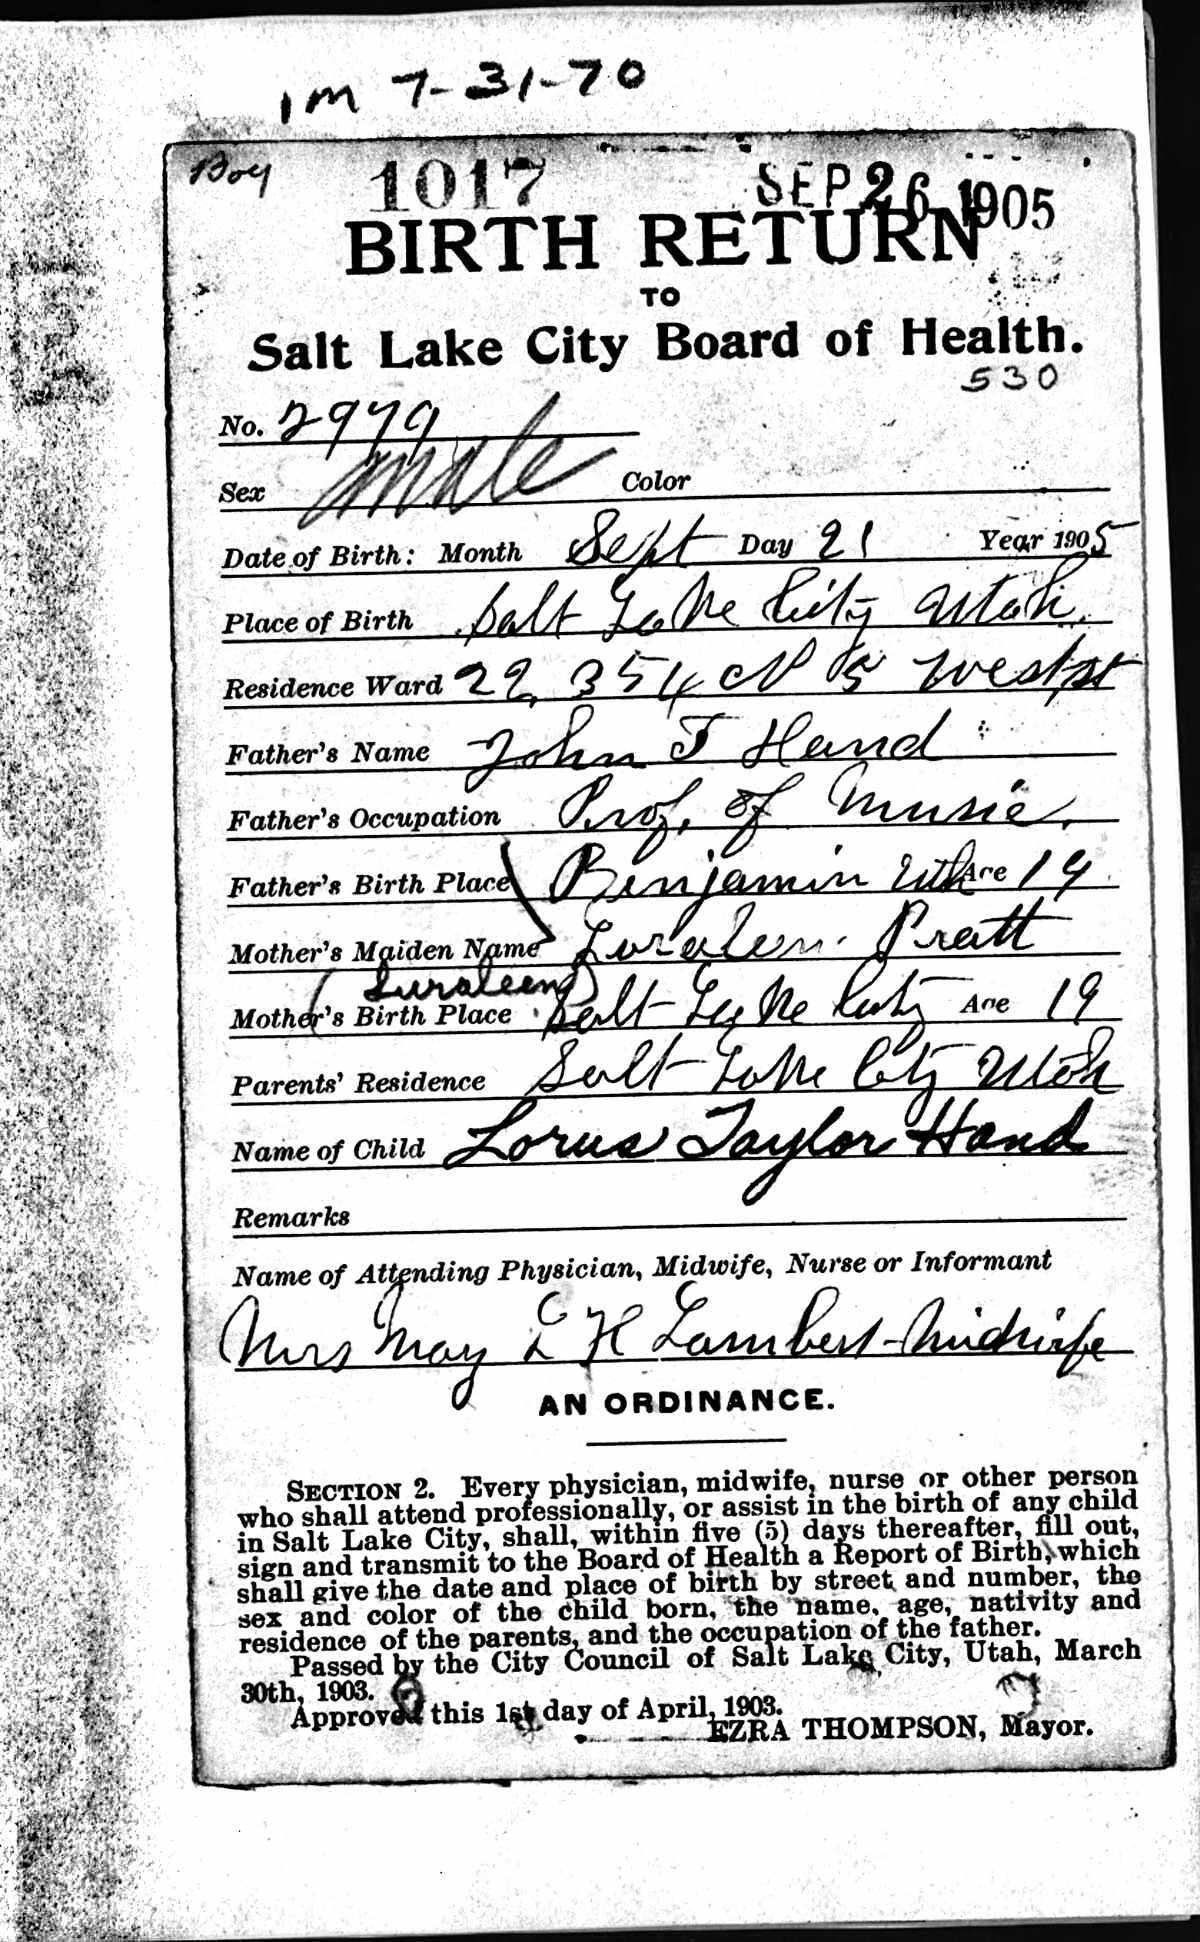 1m 7-31-70
Boy 1017 SEP 26 1905
BIRTH RETURN
TO
Salt Lake City Board of Health.
530
No. 2979
Sex Male Color
Date of Birth: Month Sept Day 21 Year 1905
Place of Birth Salt Lake City Utah.
Residence Ward 22, 354 N 5 West st
Father's Name John T Hand
Father's Occupation Prof. of Music.
Father's Birth Place Benjamin Utah Age 19
Mother's Maiden Name Luraleen Pratt
(Luraleen)
Mother's Birth Place Salt Lake City Age 19
Parents' Residence Salt Lake City Utah
Name of Child Lorus Taylor Hand
Remarks
Name of Attending Physician, Midwife, Nurse or Informant
Mrs May L H Lambert-Midwife
AN ORDINANCE.
SECTION 2. Every physician, midwife, nurse or other person
who shall attend professionally, or assist in the birth of any child
in Salt Lake City, shall, within five (5) days thereafter, fill out,
sign and transmit to the Board of Health a Report of Birth, which
shall give the date and place of birth by street and number, the
sex and color of the child born, the name, age, nativity and
residence of the parents, and the occupation of the father.
Passed by the City Council of Salt Lake City, Utah, March
30th, 1903.
Approved this 1st day of April, 1903.
EZRA THOMPSON, Mayor.